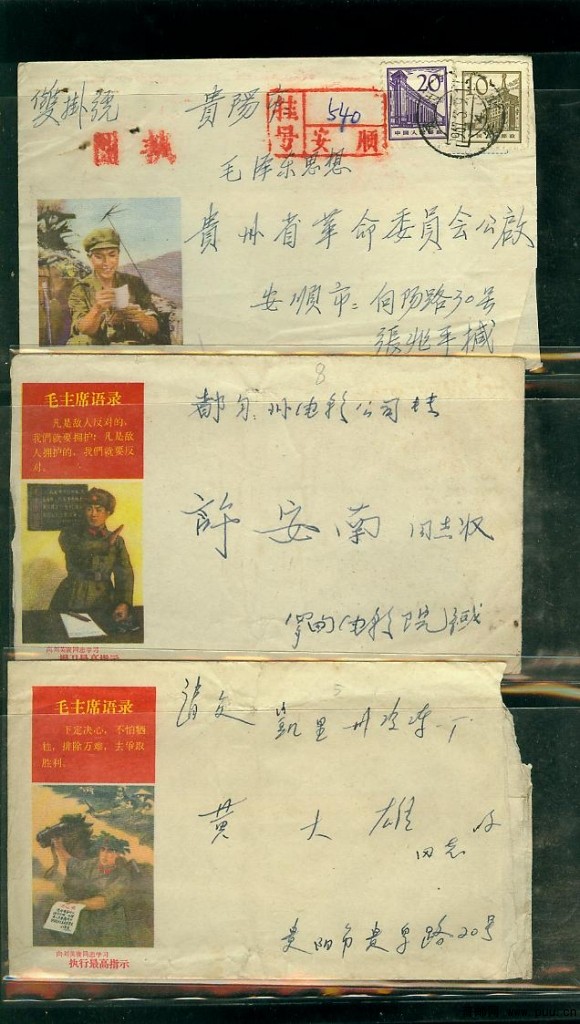 雙掛號
貴陽市
挂号
540
安顺
20
10
毛泽东思想
貴州省革命委員会公啟
安順市:向阳路30号
張兆平槭
8
毛主席语录
凡是敌人反对的,
我們就要拥护;凡是敌
人拥护的,我們就要反
对。
都匀:州电影公司
許安南 同志收
罗甸电影院
向刘英俊同志学习
毛主席语录
下定决心,不怕牺
牲,排除万难,去争取
胜利。
请交 凱里州冷冻厂
黄大雄
同志
贵阳市贵阜路20号
向刘英俊同志学习
执行最高指示